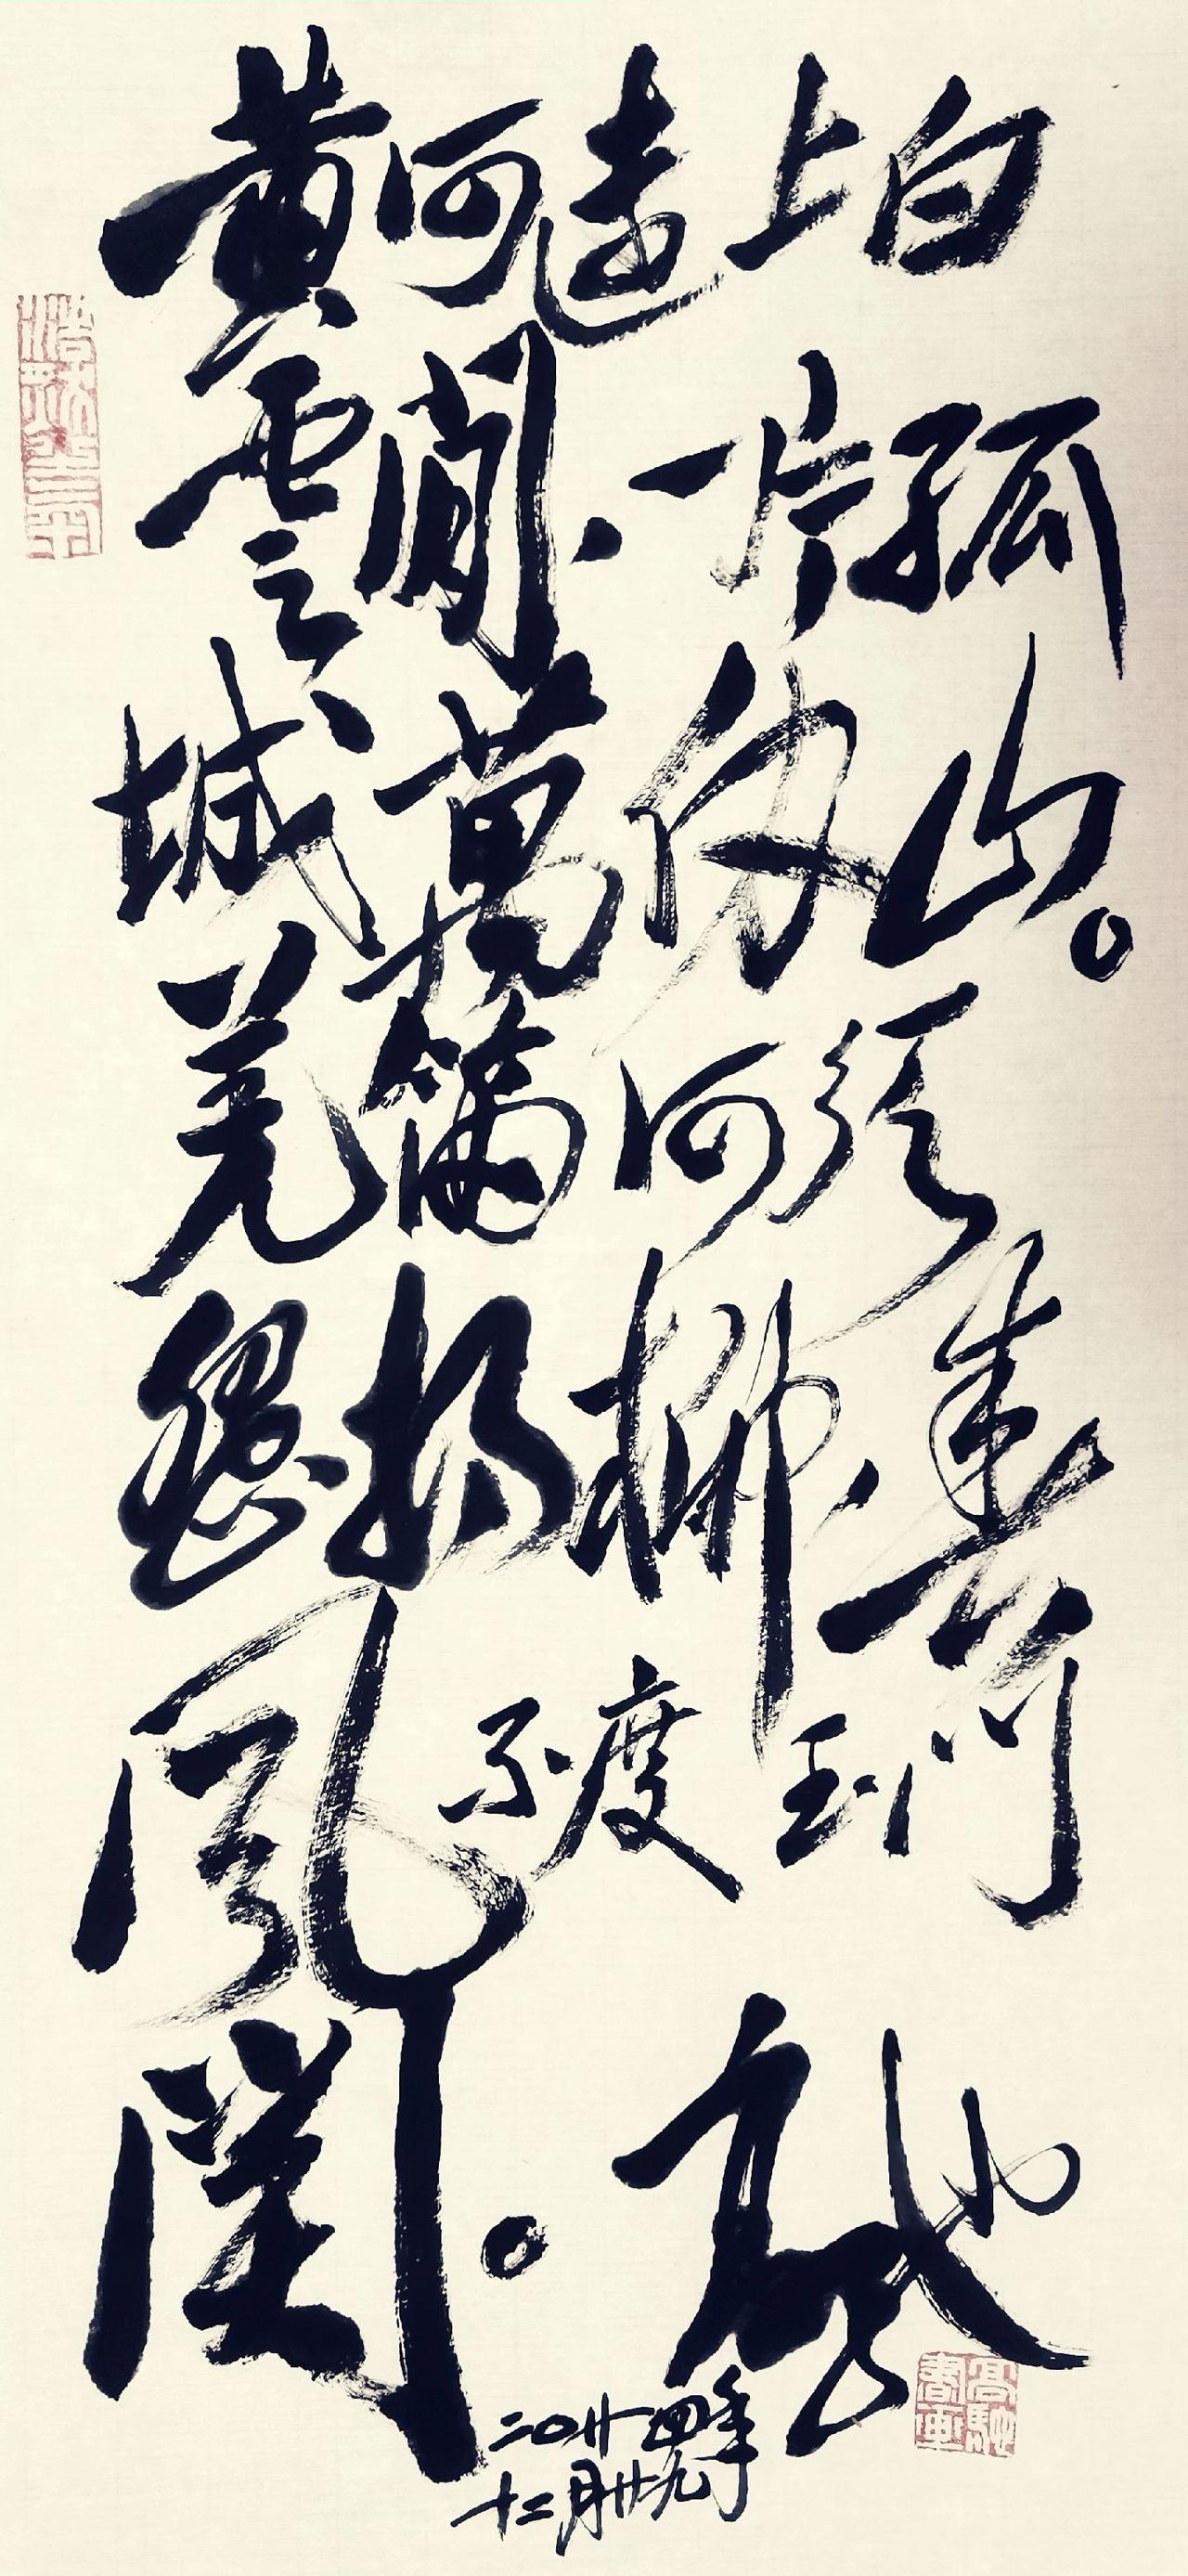 黄河遠上白
雲間、一片孤
城萬仞山。
羌笛何須
怨楊柳、春
風不度玉門
関。
高馳
二〇廿四年
十二月廿九
高馳書画